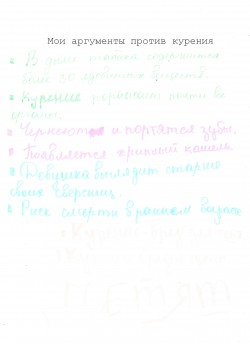 Мои аргументы против курения
В дыме табака содержится
более 30 ядовитых веществ.
Курение поражает почти все
органы.
Чернеют и портятся зубы.
Появляется хриплый кашель.
Девушка выглядит старше
своих сверстниц.
Риск смерти в раннем возрасте